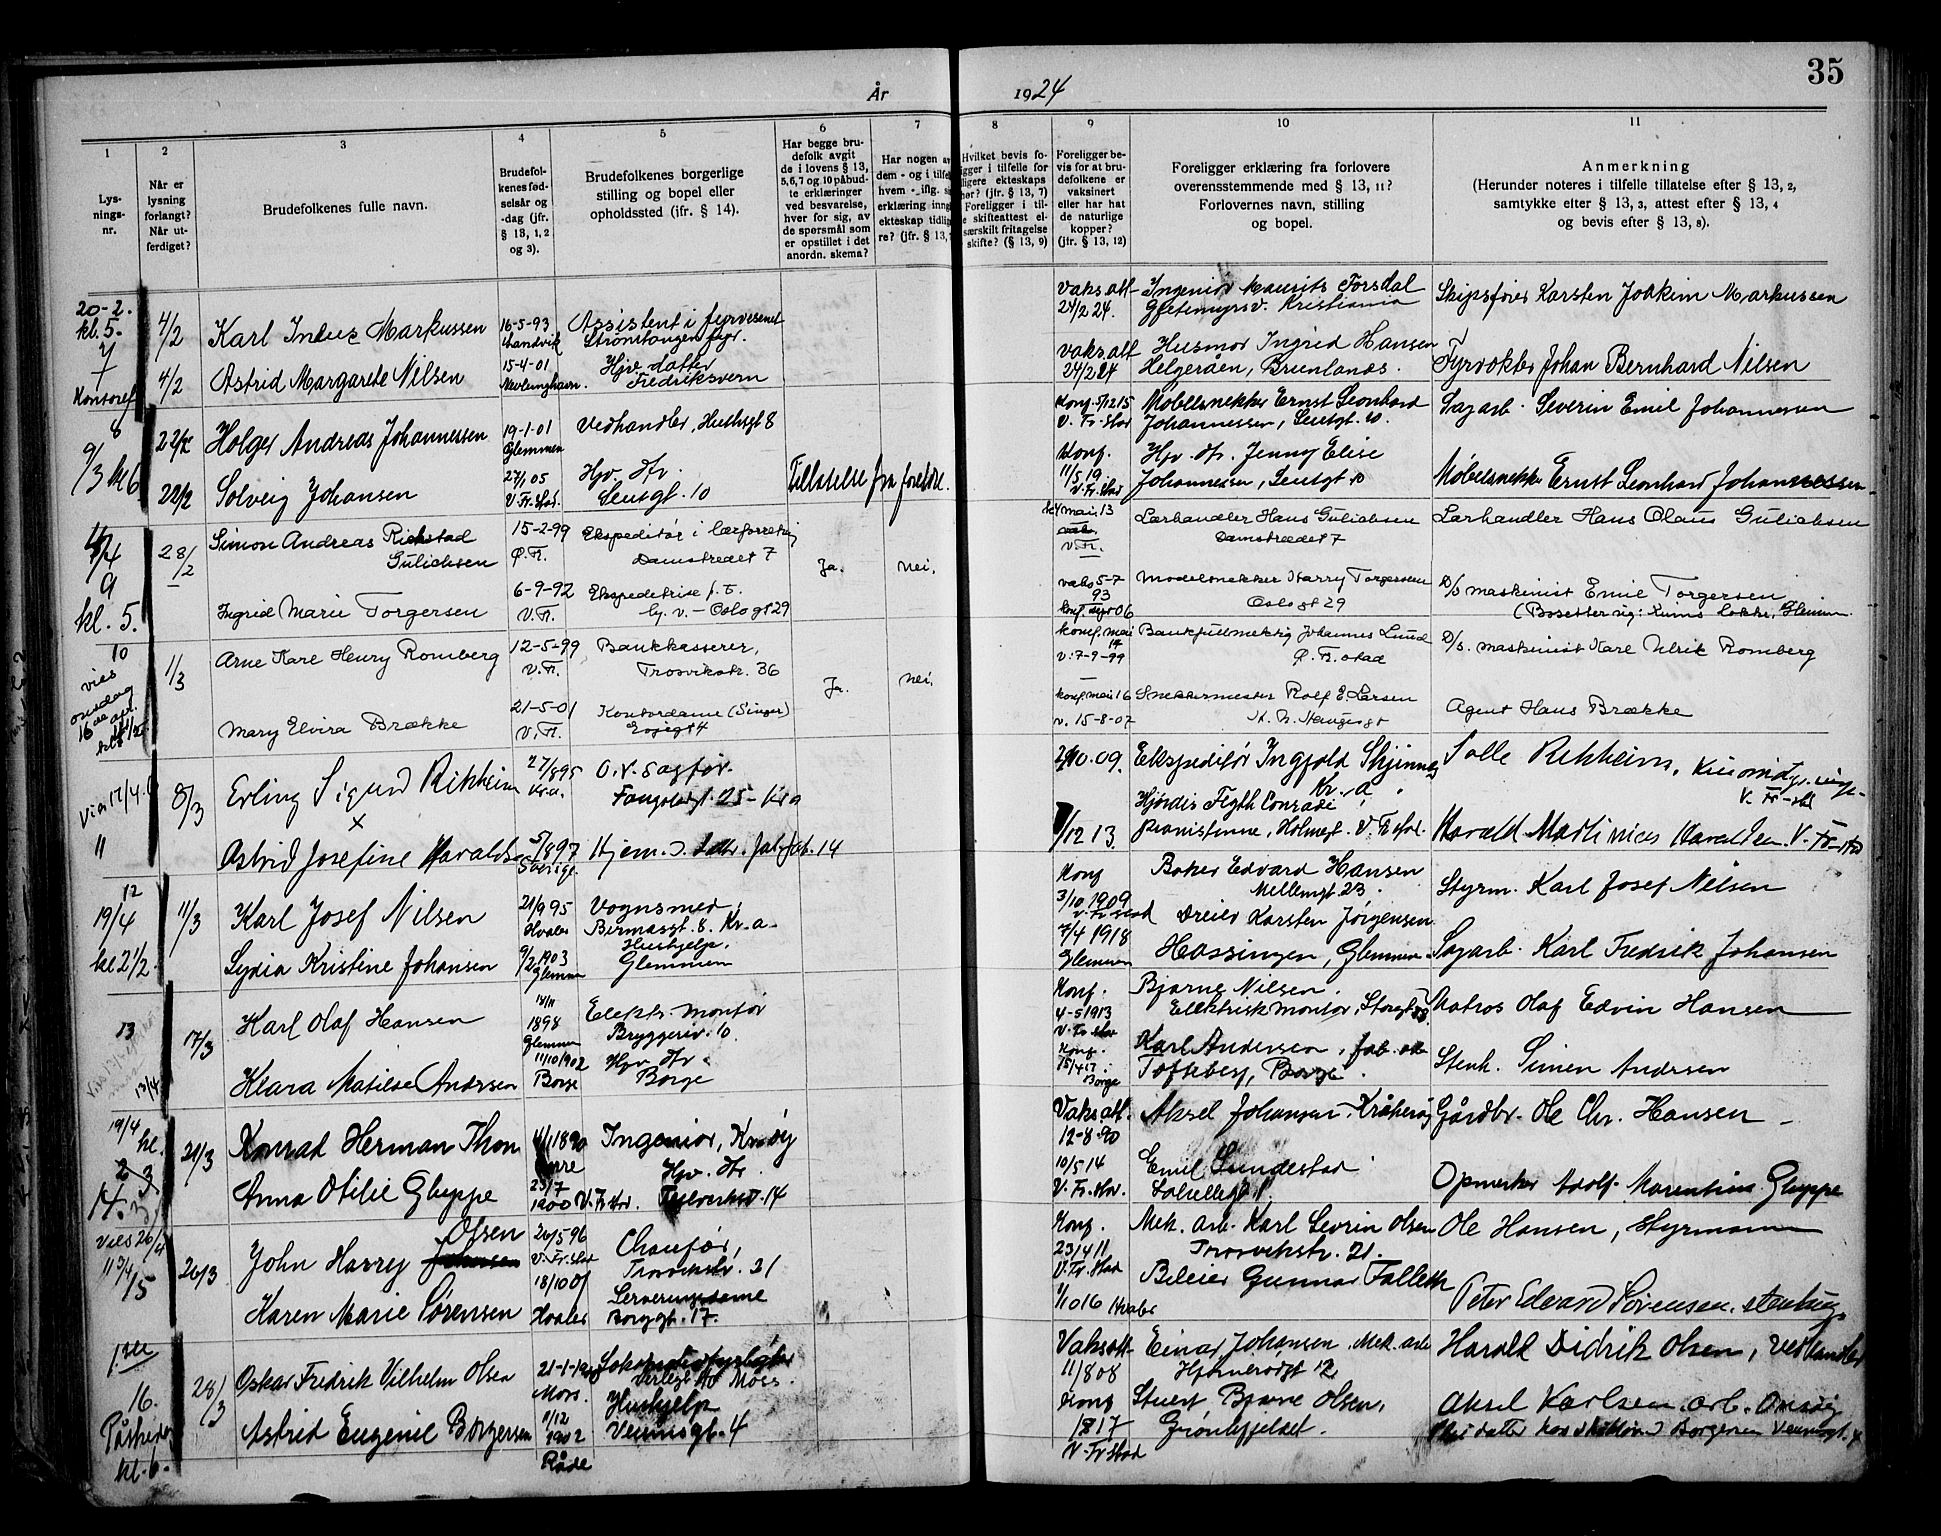 35
År 1924
1
2
3
4
5
6
7
8
9
10
11
Lys-
nings-
nr.
Når er
lysning
forlangt?
Når ut-
ferdiget?
Brudefolkenes fulle navn.
Brudefol-
kenes fød-
selsår og
-dag (jfr.
§ 13, 1, 2
og 3).
Brudefolkenes borgerlige
stilling og bopel eller
opholdssted (ifr. § 14).
Har begge bru-
defolk avgit
de i lovens § 13,
5,6,7 og 10 påbud-
te erklæringer
ved besvarelse,
hver for sig, av
de spørsmål som
er opstillet i det
anordn. skema?
Har nogen av
dem - og i tilfel
hvem - iflg. si
erklæring inng
ekteskap tidlig
re? (jfr. § 13,
Hvilket bevis fo-
igger i tilfelle for
ligere ekteskaps
hør? (jfr. § 13, 7)
Foreligger i til-
e skifteattest el-
særskilt fritagelse
skifte? (§ 13, 9)
Foreligger be-
vis for at bru-
defolkene er
vaksinert
eller har hat
de naturlige
kopper?
(jfr. § 13, 12)
Foreligger erklæring fra forlovere
overensstemmende med § 13, 11?
Forlovernes navn, stilling
og bopel.
Anmerkning
(Herunder noteres i tilfelle tillatelse efter § 13, 2,
samtykke efter § 13, 3, attest efter § 13, 4
og bevis efter § 13, 8).
20-2.
kl. 5.
7
4/2 Karl Markussen 16-5-93 Assistent i fyrvesenet
Strømtangen fyr.
Vaks att 24/2 24. Ingeniør Maurits Forsdal
Kristiania
Skipsfører Karsten Joakim Markussen
4/2 Astrid Margarete Nilsen 15-4-01 Nevlunghavn. Hjv. datter
Fredriksvern
vaks att 24/2 24 Husmor Ingrid Hansen
Helgeråen, Brunlanes.
Fyrvokter Johan Bernhard Nilsen
8
9/3 kl 6
22/2 Holger Andreas Johannessen 19-1-01 Glemmen Vedhandler,
V. Fr. stad Møbelsnekker Ernst Leonhard
Johannessen, Lensgt. 10.
Sagarb. Severin Emil Johannesen
22/2 Solveig Johansen 27/1 05 V. Fr. stad. Hjv. dtr.
Lensgt. 10
Tillatelse fra foreldre.
Konf. 11/5 19. V. Fr. stad Hjv. dtr. Jenny Elise
Johannessen, Lensgt 10
Møbelsnekker Ernst Leonhard Johannessen
9
kl. 5.
28/2 Simon Andreas
Gulichsen 15-2-99 Ø. Fr. Ekspeditør i lærforretning
Damstredet 7
Ja. Nei.
mai 13 V. Fr. Lærhandler Hans Gulichsen
Damstrædet 7
Lærhandler Hans Olaus Gulichsen
Ingrid Marie Torgersen 6-9-92 V. Fr. Ekspeditrise
Oslogt 29
vaks 5-7 93 Modelsnekker Harry Torgersen
Oslogt 29
D/s maskinist Emil Torgersen
(Bosetter sig: Glemm.
10
1/3 Arne Karl Henry Romberg 12-5-99 V. Fr. Bankkasserer,
Trosvikstr. 36
Ja. Nei.
konf. mai 14 v. 7-9-99 Bankfullmektig Johannes Lund
Ø. Fr. stad
D/s. maskinist Karl Ulrik Romberg
Mary Elvira Brække 21-5-01 V. Fr. Kontordame (Singer)
konf. mai 16 v. 15-8-07 Snekkermester Rolf E. Larsen
Agent Hans Brække
11
8/3 Erling Sigurd Rikheim 27/8 95 Kr.a. O.r. sagfør.
25 - Kr.a
2/10.09. Ekspeditør Ingjald
Kr. a
Rikheim,
V. Fr-stad
Astrid Josefine Haralds 5/8 97
7/12 13. Hjørdis Conradi
pianistinne, Holmegt. V. Fr. stad.
Harald Martinius Haraldsen. V. Fr-stad
12
19/4
kl 2 1/2.
11/3 Karl Josef Nilsen 21/9 95 Hvaler Vognsmed,
Birmasgt. 8. Kr-a-
Konf 3/10 1909 V. Fr. stad Baker Edvard Hansen
Mellemgt 23.
Styrm. Karl Josef Nilsen
Lydia Kristine Johansen 9/2 1903 Glemmen Hushjelp.
Glemmen
7/4 1918 Glemmen Dreier Karsten Jørgensen
Hassingen, Glemmen.
Sagarb. Karl Fredrik Johansen
13
17/3 Karl Olaf Hansen 1898 Glemmen Elektr. montør
Bryggeriv. 10.
Konf. 4-5 1913 V. Fr. stad Bjarne Nilsen.
Elektrisk montør, Storgt
Matros Olaf Edvin Hansen
Klara Matilde Andersen 11/10 1902 Borge Hjv. dtr.
Borge
Konf. 15/4 17. Borge Karl Andersen, fab. arb
Tofteberg, Borge.
Stenh. Simen Andersen
19/4 kl.
14.
21/3 Konrad Herman Thon 1890 Ingeniør, Kråkerøy
Vaks att. 12-8-90 Aksel Johansen, Kråkerøy
Gårdbr. Ole Chr. Hansen
Anna Otilie Gluppe 23/7 1900 V. Fr. stad. Hjv. dtr.
Teglverksv. 14
10/5 14 V. Fr. stad. Emil Sundestad
Opmerker Adolf Marentius Gluppe
Vies 26/4
15
26/3 John Harry Olsen 26/5 96 V. Fr. stad Chauffør,
Trosvikstr. 21
Konf. 23/4 11 V. Fr. stad Mek. arb. Karl Severin Olsen
Trosvikstr. 21.
Ole Hansen, styrmann
Karen Marie Sørensen 18/10 01 Hvaler Serveringsdame
Borggt. 17.
1/10 16 Hvaler Bileier Gunnar Falleth
Peter Edvard Sørensen. stenhug.
16.
Påskedag
kl. 6.
28/3 Oskar Fredrik Vilhelm Olsen Moss. Lokomotivfyrbøter
Verlegt. 40 Moss.
Vaks att 11/8 08 Einar Johansen, Mek. arb
Hjørnerødgt 12
Harald Didrik Olsen, Vedhandler
Astrid Eugenie Borgersen 11/12 1902 Råde Hushjelp
Veumsgt. 4
Konf 17 V. Fr. stad Stuert Bjarne Olsen,
Grønlifjeldet.
Aksel Karlsen. arb. Onsøy
Borgersen Veumsgt. 4